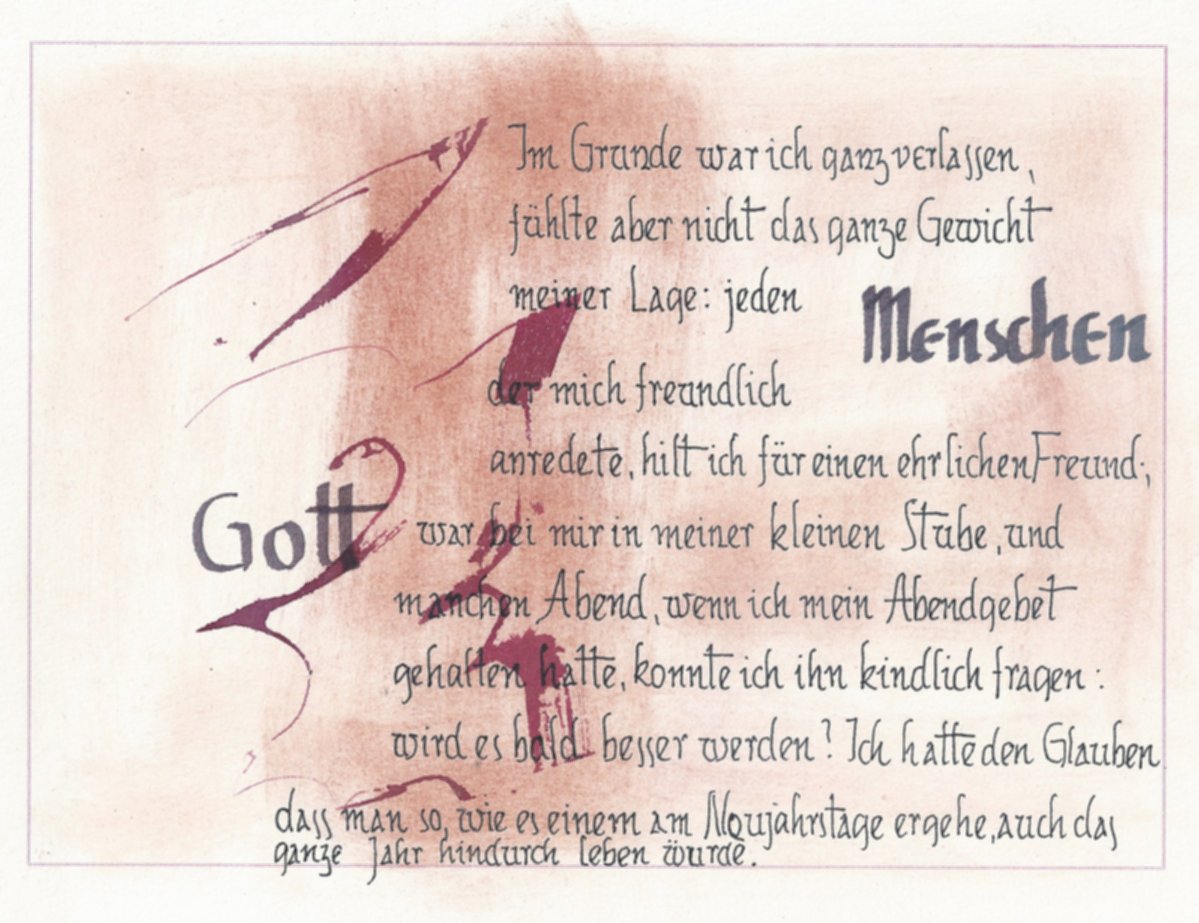 Im Grunde war ich ganz verlassen,
fühlte aber nicht das ganze Gewicht
meiner Lage: jeden Menschen
der mich freundlich
anredete, hilt ich für einen ehrlichen Freund;
Gott war bei mir in meiner kleinen Stube, und
manchen Abend, wenn ich mein Abendgebet
gehalten hatte, konnte ich ihn kindlich fragen:
wird es bald besser werden? Ich hatte den Glauben
dass man so, wie es einem am Noujahrstage ergehe, auch das
ganze Jahr hindurch leben würde.